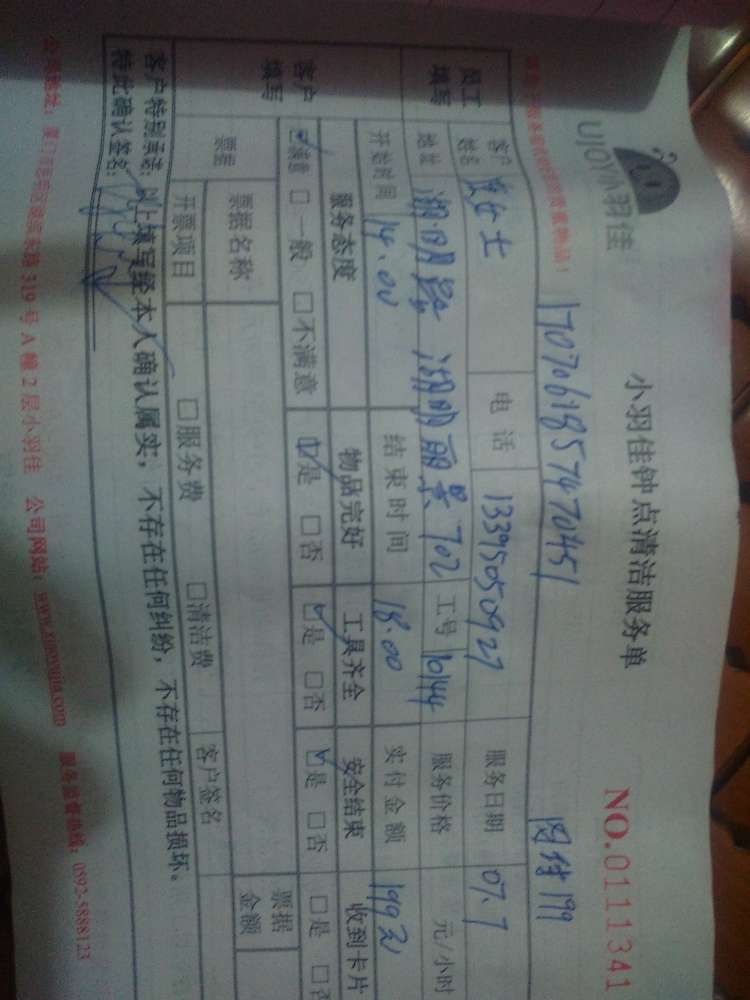 UJOY小羽佳
小羽佳钟点清洁服务单
NO.0111341
1707061857470451
网付199
员工填写
客户姓名 女士 电话 13395050927 服务日期 07.7
地址 湖明路 湖明丽景702 工号 10144 服务价格 元/小时
开始时间 14.00 结束时间 18.00 实付金额 199元
客户填写
服务态度 物品完好 工具齐全 安全结束 收到卡片
☑满意 □一般 □不满意 ☑是 □否 ☑是 □否 ☑是 □否 □是 □否
票据
票据名称 票据金额
开票项目 □服务费 □清洁费 客户签名
客户特别承诺:以上填写经本人确认属实,不存在任何纠纷,不存在任何物品损坏。
特此确认签名:
319号A幢2层小羽佳 公司网站:www.xiaoyujia.com 服务监督热线:0592-5888123